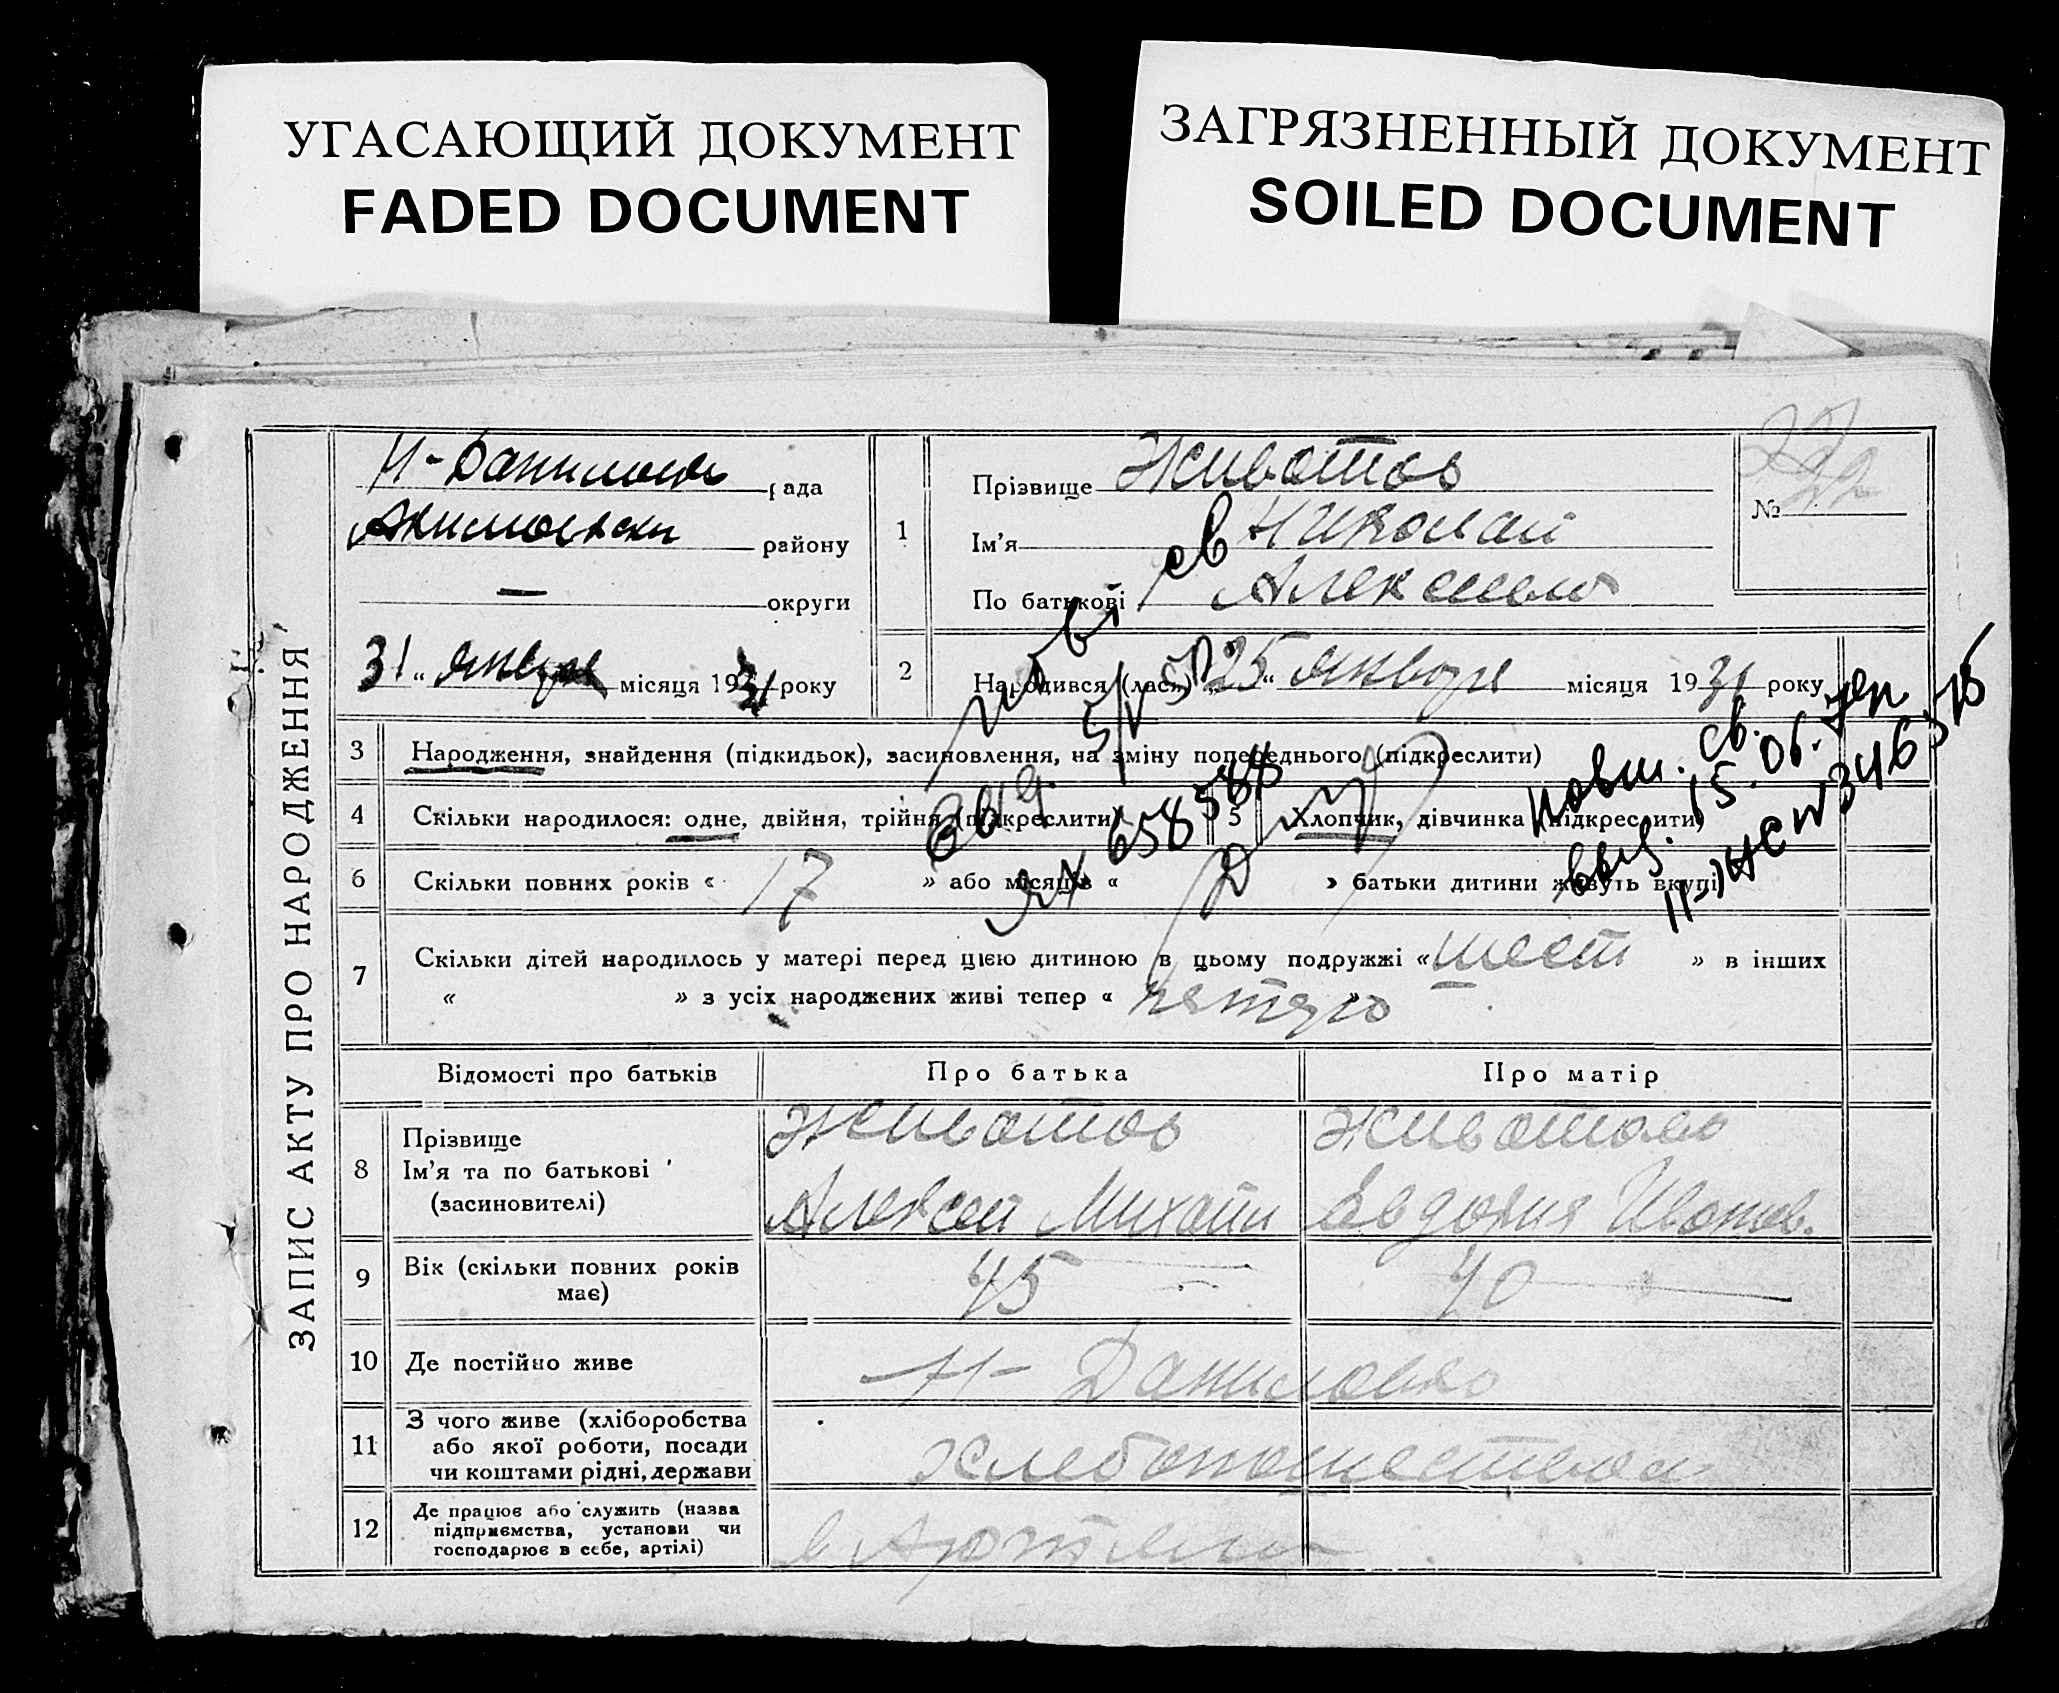 УГАСАЮЩИЙ ДОКУМЕНТ
FADED DOCUMENT
ЗАГРЯЗНЕННЫЙ ДОКУМЕНТ
SOILED DOCUMENT
ЗАПИС АКТУ ПРО НАРОДЖЕННЯ
рада
району
— округи
31 „ января місяця 1931 року
№
1
Прізвище Животов
Ім'я Николай
По батькові
2
Народився (лася) „ 25 “ января місяця 1931 року
3 Народження, знайдення (підкидьок), засиновлення, на зміну попереднього (підкреслити)
4 Скільки народилося: одне, двійня, трійня (підкреслити)
5 Хлопчик, дівчинка (підкреслити)
6 Скільки повних років « 17 » або місяців « » батьки дитини живуть вкупі
Повт. св.
выд. 15. 06.
658588
7 Скільки дітей народилось у матері перед цією дитиною в цьому подружжі « шест » в інших
« » з усіх народжених живі тепер «
Відомості про батьків Про батька Про матір
8
Прізвище Животов Животова
Ім'я та по батькові Алексей Михайл Евдокия Иванов.
(засиновителі)
9 Вік (скільки повних років має) 45 40
10 Де постійно живе Н- Даниловка
11 З чого живе (хліборобства
або якої роботи, посади
чи коштами рідні, держави
12 Де працює або служить (назва в Артели
підприємства, установи чи
господарює в себе, артілі)